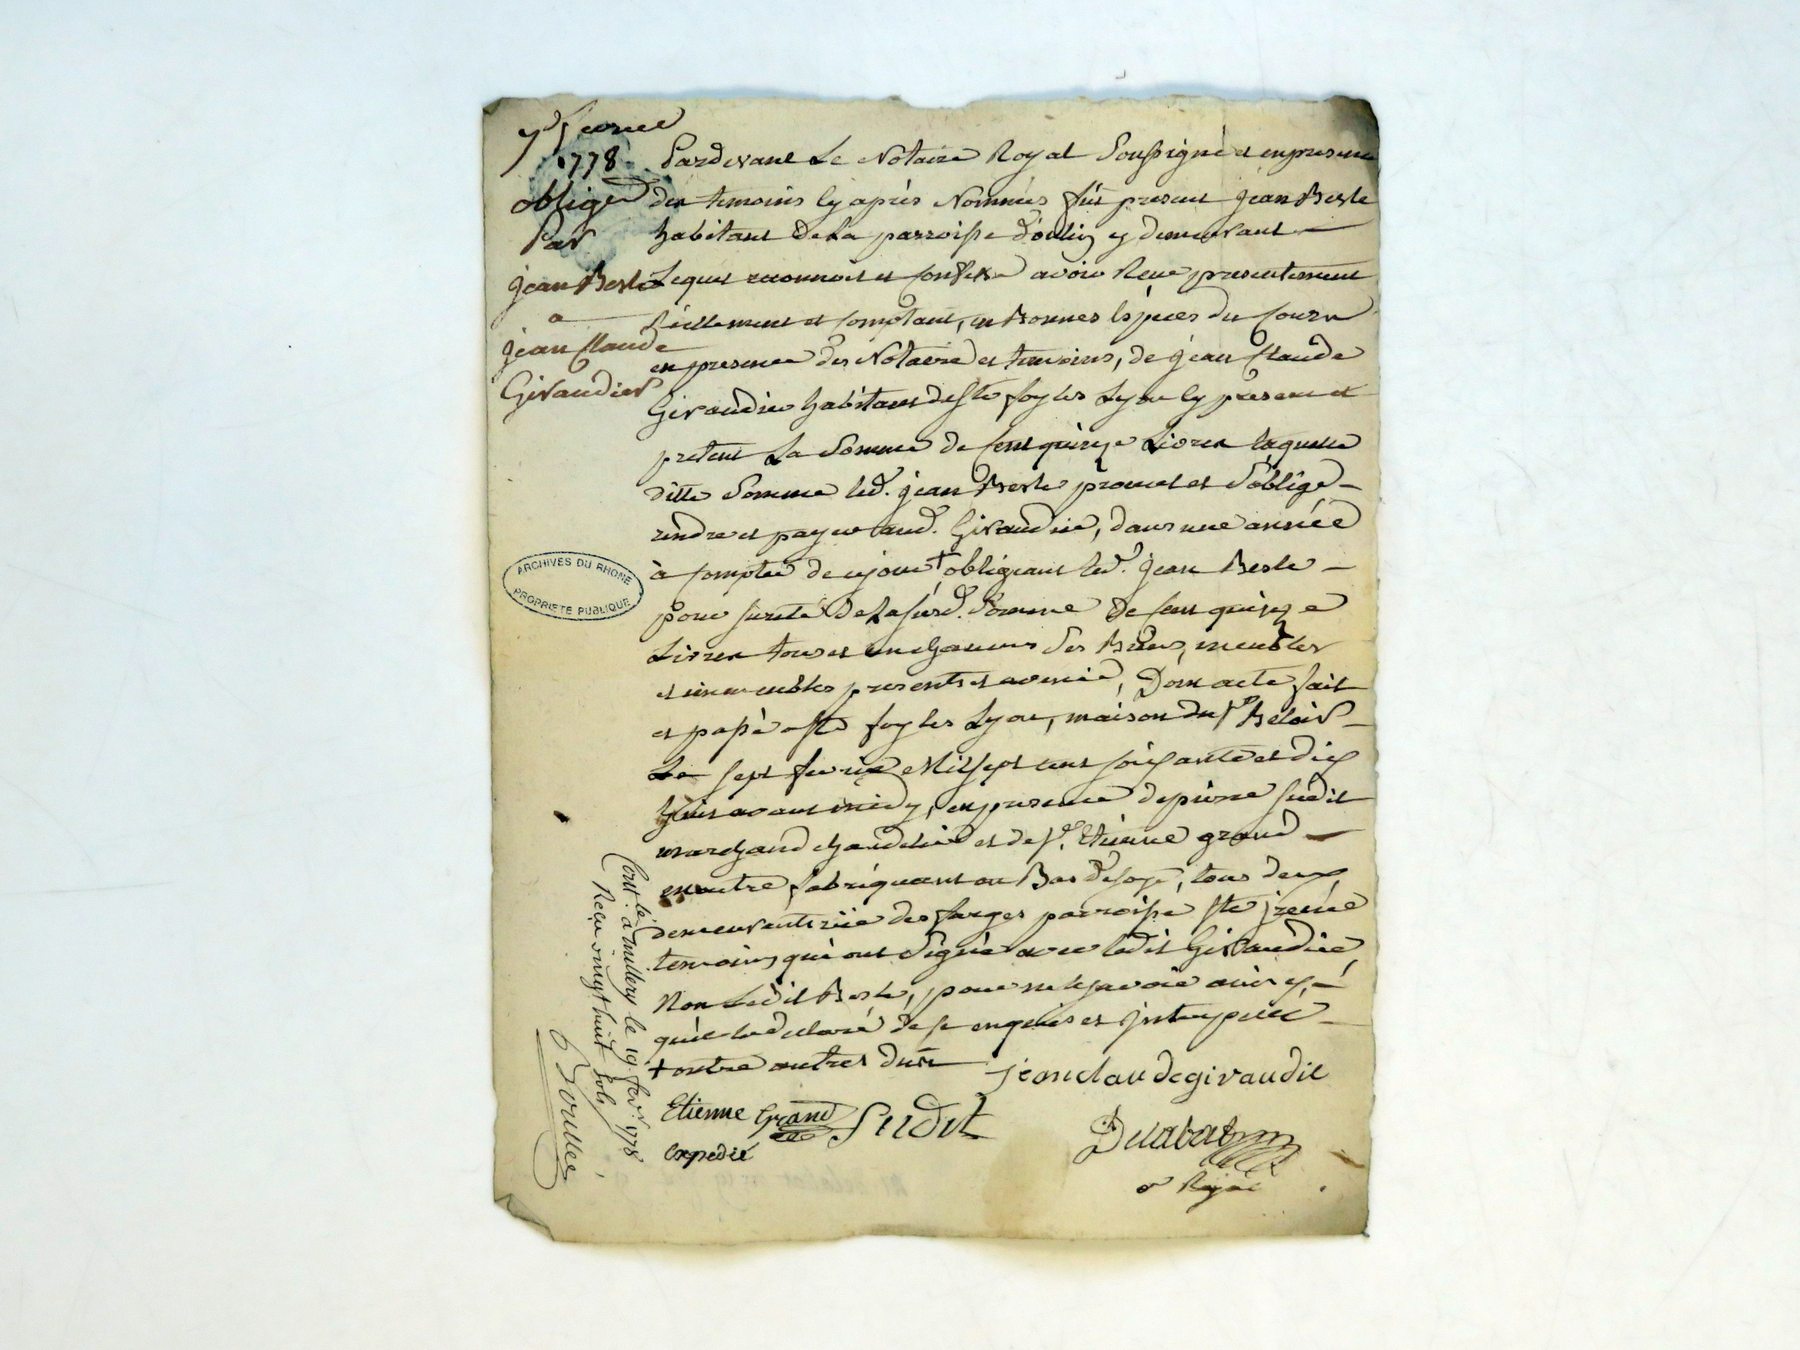 7e fevrier
1778
obligé
Par
jean Berle
a
jean Claude
Giraudier
Pardevant Le Notaire Royal Soussigné et en presence
des temoins cy après Nommés fût present jean Berle
habitant De La parroisse d'oulin y demeurant
Lequel reconnoit et confesse avoir Reçu presentement
réellement et comptant, en Bonnes Espèces du Cours
en presence des Notaire et temoins, de jean Claude
Giraudier habitant de Ste foy les Lyon cy present et
pretant La Somme de Cent quinze Livres laquelle
ditte Somme led. jean Berle promet et S'oblige
rendre et payer aud. Giraudier, dans une année
à compter de ce jour + obligeant led. jean Berle
pour sureté De La susd. Somme De Cent quinze
Livres tous et un chacuns Ses Biens, meubles
et immeubles presents et avenir, Dont acte fait
et passé a Ste foy les Lyon, maison du Sr. Belair
Le sept fevrier Mil sept cent soixante et dix
huit avant midy, en presence de pierre Sudit
marchand chandelier et de Sr. Etienne grand
maitre fabriquant en Bas de soye, tous deux
demeurants rüe des farges parroisse St jrenée
temoins qui ont Signé avec ledit Giraudier
Non Ledit Berle, pour ne sçavoir ainsy
qu'il la declaré de ce enquis et jnterpellé
+ outre autres dus
jeanclaudegiraudie
Etienne Grand Sudit
Delabat
expedié
nre Royal
Cont. à millery le 19 fevr. 1778
Reçu vingt huit Sols
ARCHIVES DU RHONE
PROPRIETE PUBLIQUE